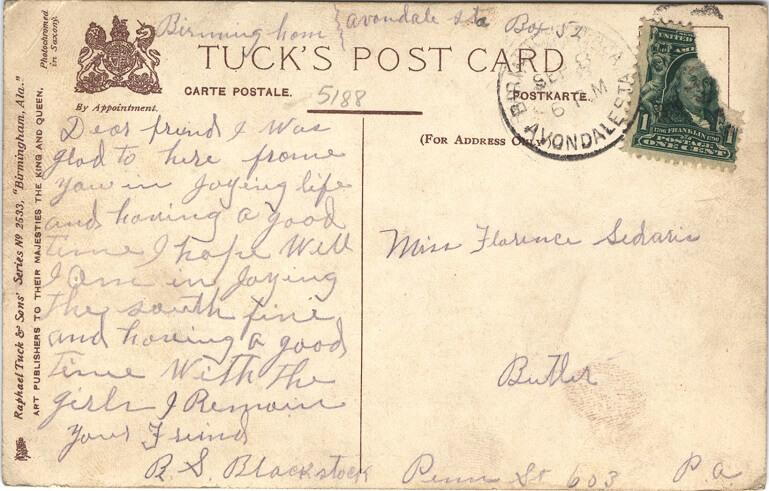 Birmingham { avondale sta Box 52
TUCK'S POST CARD
CARTE POSTALE.
POSTKARTE.
5188
By Appointment.
(For Address Only)
Photochromed
in Saxony.
Raphael Tuck & Sons' Series Nº 2533, "Birmingham, Ala."
ART PUBLISHERS TO THEIR MAJESTIES THE KING AND QUEEN.
SEP
6 PM
AVONDALE STA
UNITED
1 1
1706 FRANKLIN 1790
POSTAGE
ONE CENT
Dear friend I Was
glad to here frome
you in Joying life
and having a good
time I hope Well
I Am in Joying
the south fine
and having a good
time With the
girls I Remain
your Friend
R. S. Blackstock
Miss Florence Sedaris
Butler
Penn St 603 P.a